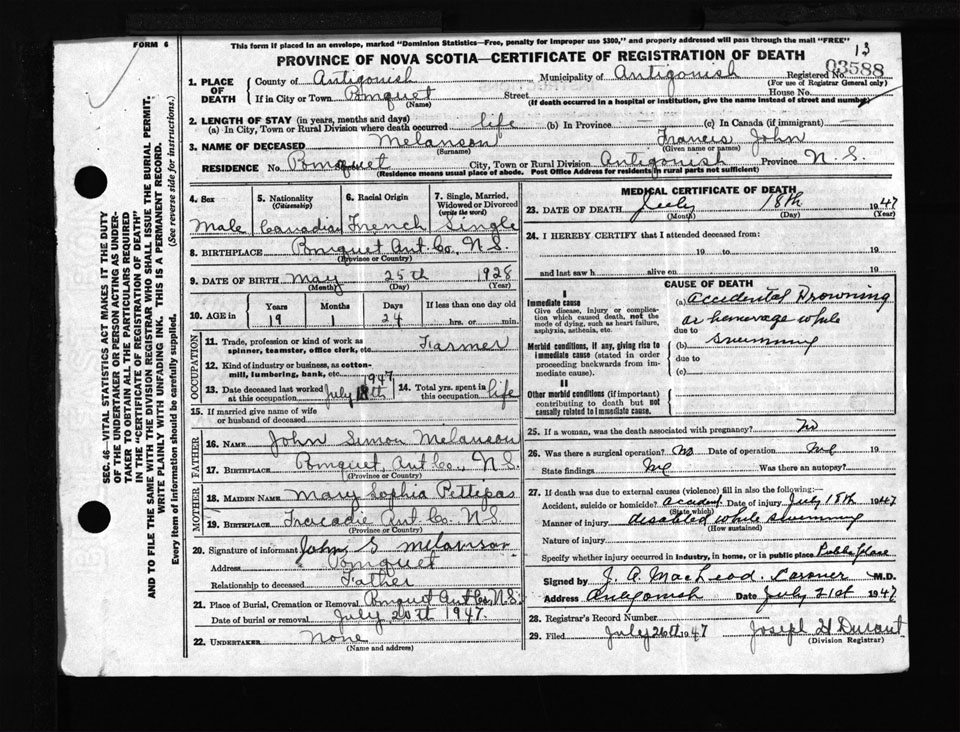 FORM 6
This form if placed in an envelope, marked "Dominion Statistics—Free, penalty for improper use $300," and properly addressed will pass through the mail "FREE"
PROVINCE OF NOVA SCOTIA—CERTIFICATE OF REGISTRATION OF DEATH
13
03588
1. PLACE OF DEATH County of Antigonish Municipality of Antigonish Registered No.
(For use of Registrar General only)
If in City or Town Pomquet Street House No.
(Name) (If death occurred in a hospital or institution, give the name instead of street and number)
2. LENGTH OF STAY (in years, months and days)
(a) In City, Town or Rural Division where death occurred life (b) In Province (c) In Canada (if immigrant) —
3. NAME OF DECEASED Melanson Francis John
(Surname) (Given name or names)
RESIDENCE No. Pomquet City, Town or Rural Division Antigonish Province N.S.
(Residence means usual place of abode. Post Office Address for residents in rural parts not sufficient)
4. Sex 5. Nationality (Citizenship) 6. Racial Origin 7. Single, Married, Widowed or Divorced (write the word)
Male Canadian French Single
8. BIRTHPLACE Pomquet Ant. Co. N.S.
(Province or Country)
9. DATE OF BIRTH May 25th 1928
(Month) (Day) (Year)
10. AGE in Years Months Days If less than one day old
19 1 24 hrs. or min.
OCCUPATION
11. Trade, profession or kind of work as spinner, teamster, office clerk, etc. Farmer
12. Kind of industry or business, as cotton-mill, lumbering, bank, etc.
13. Date deceased last worked at this occupation July 18th 1947 14. Total yrs. spent in this occupation life
15. If married give name of wife or husband of deceased
FATHER
16. NAME John Simon Melanson
17. BIRTHPLACE Pomquet, Ant Co., N.S.
(Province or Country)
MOTHER
18. MAIDEN NAME Mary Sophia Pettipas
19. BIRTHPLACE Tracadie Ant. Co. N.S.
(Province or Country)
20. Signature of informant John S Melanson
Address Pomquet
Relationship to deceased Father
21. Place of Burial, Cremation or Removal Pomquet Ant Co. N.S.
Date of burial or removal July 20th 1947.
22. UNDERTAKER None
(Name and address)
MEDICAL CERTIFICATE OF DEATH
23. DATE OF DEATH July 18th 1947
(Month) (Day) (Year)
24. I HEREBY CERTIFY that I attended deceased from:
19 to 19
and last saw h alive on 19
CAUSE OF DEATH
I
Immediate cause
Give disease, injury or complication which caused death, not the mode of dying, such as heart failure, asphyxia, asthenia, etc.
(a) Accidental Drowning
or hemorrage while
due to
Morbid conditions, if any, giving rise to immediate cause (stated in order proceeding backwards from immediate cause).
(b) swimming
due to
(c)
II
Other morbid conditions (if important) contributing to death but not causally related to immediate cause.
25. If a woman, was the death associated with pregnancy? No
26. Was there a surgical operation? No Date of operation
State findings Was there an autopsy?
27. If death was due to external causes (violence) fill in also the following:
Accident, suicide or homicide? Accident. Date of injury July 18th 1947
(State which)
Manner of injury disabled while swimming
(How sustained)
Nature of injury
Specify whether injury occurred in industry, in home, or in public place Public place
Signed by J. A. MacLeod. Coroner M.D.
Address Antigonish Date July 21st 1947
28. Registrar's Record Number
29. Filed July 26th 1947 Joseph H Durant
(Division Registrar)
SEC. 46—VITAL STATISTICS ACT MAKES IT THE DUTY
OF THE UNDERTAKER OR PERSON ACTING AS UNDER-
TAKER TO OBTAIN ALL THE PARTICULARS REQUIRED
IN THE "CERTIFICATE OF REGISTRATION OF DEATH"
AND TO FILE THE SAME WITH THE DIVISION REGISTRAR WHO SHALL ISSUE THE BURIAL PERMIT.
WRITE PLAINLY WITH UNFADING INK. THIS IS A PERMANENT RECORD.
Every item of Information should be carefully supplied. (See reverse side for instructions.)